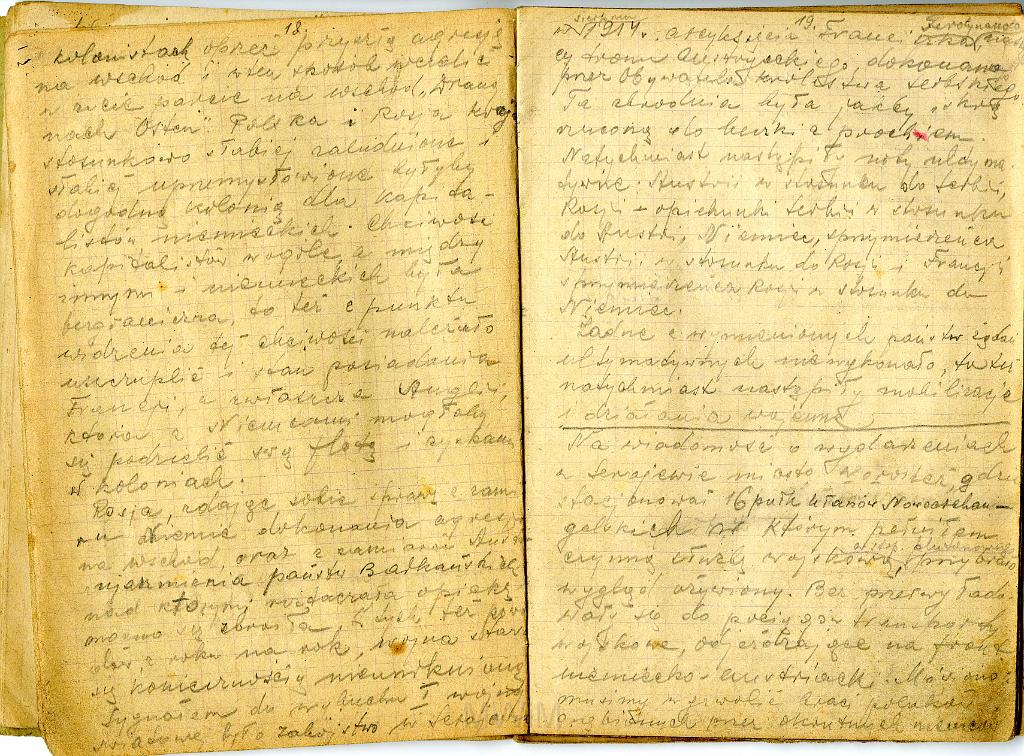 18.
kolonistach oprzeć przyszłą agresję
na wschód i w ten sposób wcielić
w życie parcie na wschód, "Drang
nach Osten". Polska i Rosja kraje
stosunkowo słabiej zaludnione i
słabiej uprzemysłowione byłyby
dogodną kolonią dla kapita-
listów niemieckich. Chciwość
kapitalistów wogóle, a między
innymi - niemieckich była
bezgraniczna, to też z punktu
widzenia tej chciwości należało
uszczuplić i stan posiadania
Francji, a zwłaszcza Anglii,
która z Niemcami mogłaby
się podzielić swą flotą i zyskami
w koloniach.
Rosja, zdając sobie sprawę z zamia
ru Niemiec dokonania agresji
na wschód, oraz z zamiarów Austrii
ujarzmienia państw Bałkańskich,
nad którymi roztaczała opiekę
mocno się zbroiła. Z tych też powo
dów z roku na rok, wojna stała
się koniecznością nieuniknioną
Sygnałem do wybuchu I wojny
światowej było zabójstwo w Serajewie
19.
sierpniu Ferdynanda
w 1914. arcyksięcia Franciszka,
cy tronu Austryjackiego, dokonane
przez Obywatela królestwa serbskiego.
Ta zbrodnia była jakby iskrą
rzuconą do beczki z prochem.
Natychmiast nastąpiły noty ultyma
tywne: Austrii w stosunku do Serbii,
Rosji - opiekunki Serbii w stosunku
do Austrii, Niemiec, sprzymierzeńca
Austrii w stosunku do Rosji i Francji
sprzymierzeńca Rosji w stosunku do
Niemiec.
Żadne z wymienionych państw żądań
ultymatywnych niewykonało, to też
natychmiast nastąpiły mobilizacje
i działania wojenne
Na wiadomość o wydarzeniach
w Serajewie miasto gdzie
stacjonował 16 pułk ułanów Nowoarchan-
gelskich w którym pełniłem
czynną służbę wojskową, przybrało
wygląd ożywiony. Bez przerwy ład
wały się do pociągów transporty
wojskowe, odjeżdżające na front
niemiecko-austriacki. Mówiono:
musimy wyzwolić braci polaków
gnębionych przez okrutnych niemców